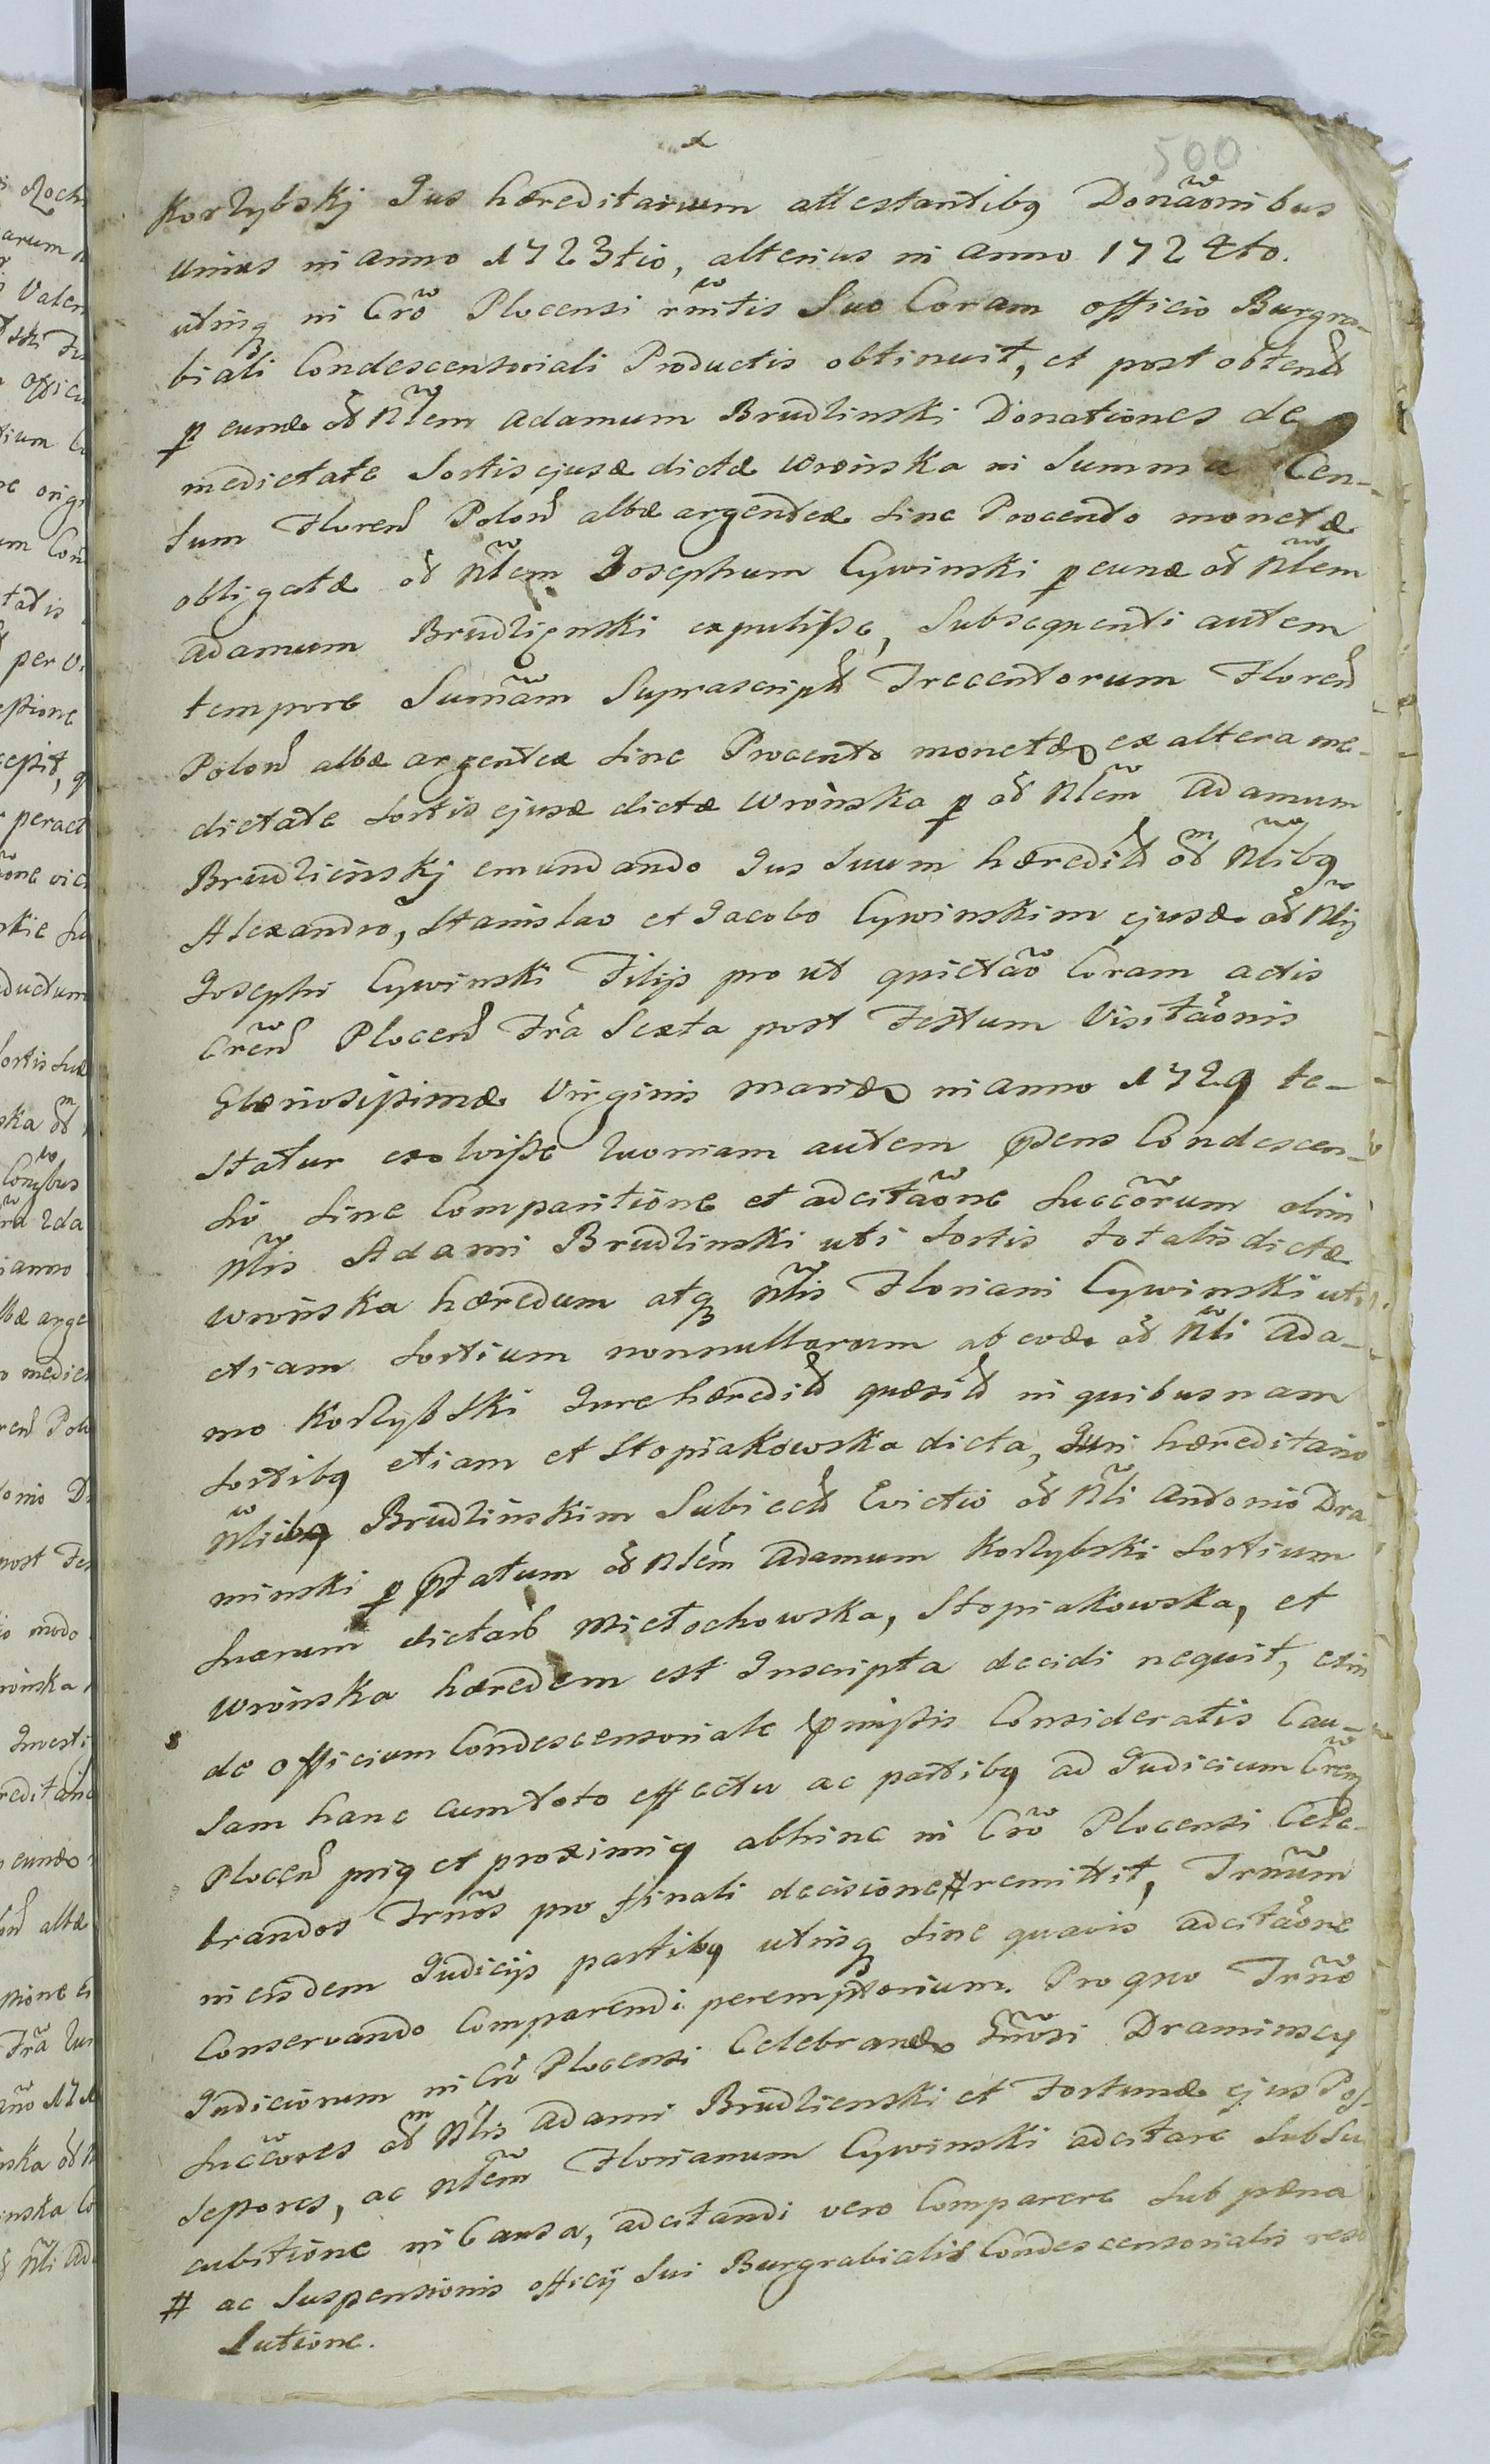 500
Korzybskj Jus hæreditarium attestantibq Donãonibus
Unius in anno 1723tio, alterius in anno 1724to.
utinq in Crõ Plocensi rmitis Suo Coram officio Burgra-
biali Condescensoriali Productis obtinuit, et post obtend
p eundæ od Nlem Adamum Brudlinski Donationes de
medietate Sortis ejusdæ dictæ Wroinska in Summa Cen-
tum Florend Polond albæ argenteæ sine Procento monetæ
obligatæ od Nlem Josephum Cywinski p eundæ od Nlem
Adamum Brudlienski expulisse, Subsequenti autem
tempore Sumãm Suprascriptd Trecentorum Florend
Polond albæ argenteæ sine Procento monetæ, ex altera me-
dietate Sortis ejusdæ dictæ Wroinska p od Nlem Adamum
Brudlieinskj emundando Jus Suum hæreditd odm Nlibq
Alexandro, Stanislao et Jacobo Cywinskim ejusdæ od Nlij
Josephi Cywinski Filijs pro ut quietão Coram actis
Crend Plocend Frã Sexta post Festum Visitãonis
Gloriosissimæ Virginis Mariæ in anno 1729 te-
statur exolvisse Quoniam autem pdens Condescen-
sio sine Comparitione et adcitãone Succõrum olim
Nlis Adami Brudlinski uti Sortis Totalis dictæ
Wroinska hæredum atq Nlis Floriani Cywinski uti
etiam Sortium nonnullarum ab eodæ od Nli Ada-
mo Korzybski Jure hæreditd quæsitd in quibusnam
Sortibq etiam et Stopiakowska dicta, Juri hæreditario
Nliibq Brudlinskim Subjectd Evictio od Nli Antonio Dra
minski p pstatum od Nlem Adamum Korzybski Sortium
Suarum dictarb Mietochowska, Stopiakowska, et
Wroinska hæredem est Inscripta decidi nequit, etin
de officium Condescensoriale pmissis Consideratis Cau-
sam hanc cum toto effectu ac partibq ad Judicium Crem
Plocend priq et proximiq abhinc in Crõ Plocensi Cele-
brandos Trnõs pro finali decisione # remittit, Trnũm
in eisdem Judicijs partibq utinsq sine quavis adcitãone
Conservando Comparendi peremptorium. Pro quo Trnõ
Judiciorum in Crõ Plocensi Celebrandæ Gnõsi Draminscy
Succõres odm Nlis Adami Brudlienski et Fortunæ ejus Pos-
sessores, ac Nlem Florianum Cywinski adcitare Sub Su
cubitione in Causa, adcitandi vero Comparere Sub pæna
# ac Suspensionis officij Sui Burgrabialis Condescensorialis reso
lutione.